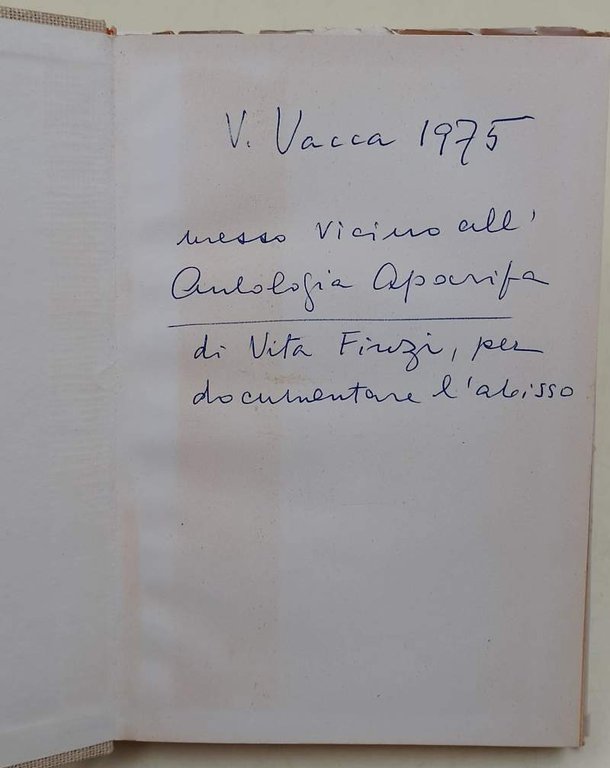 V. Vacca 1975
messo vicino all'
Antologia Apocrifa
di Vita Finzi, per
documentare l'abisso